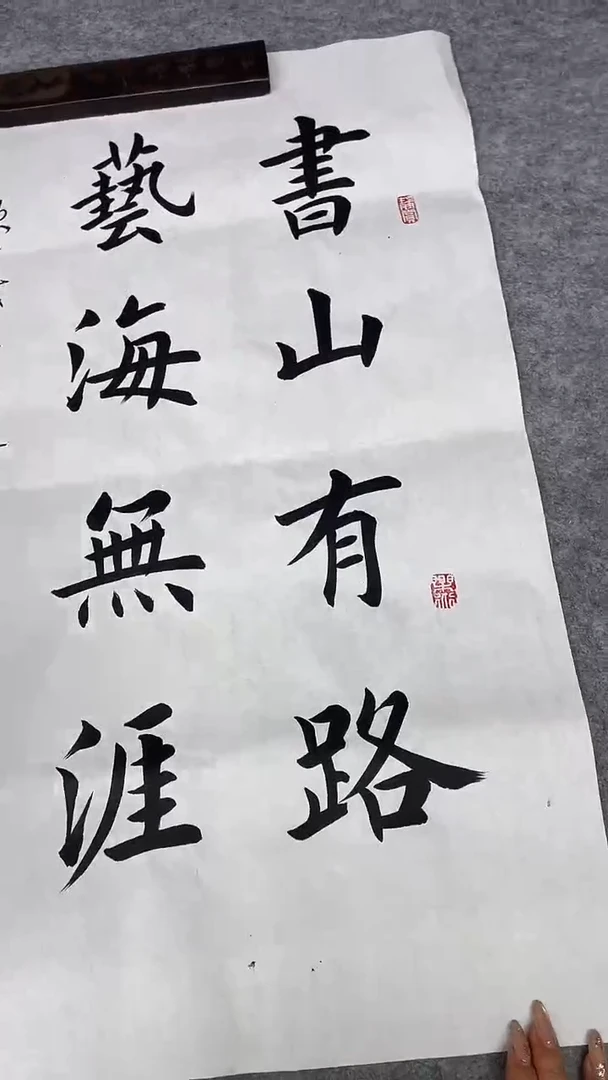 書山有路
藝海無涯